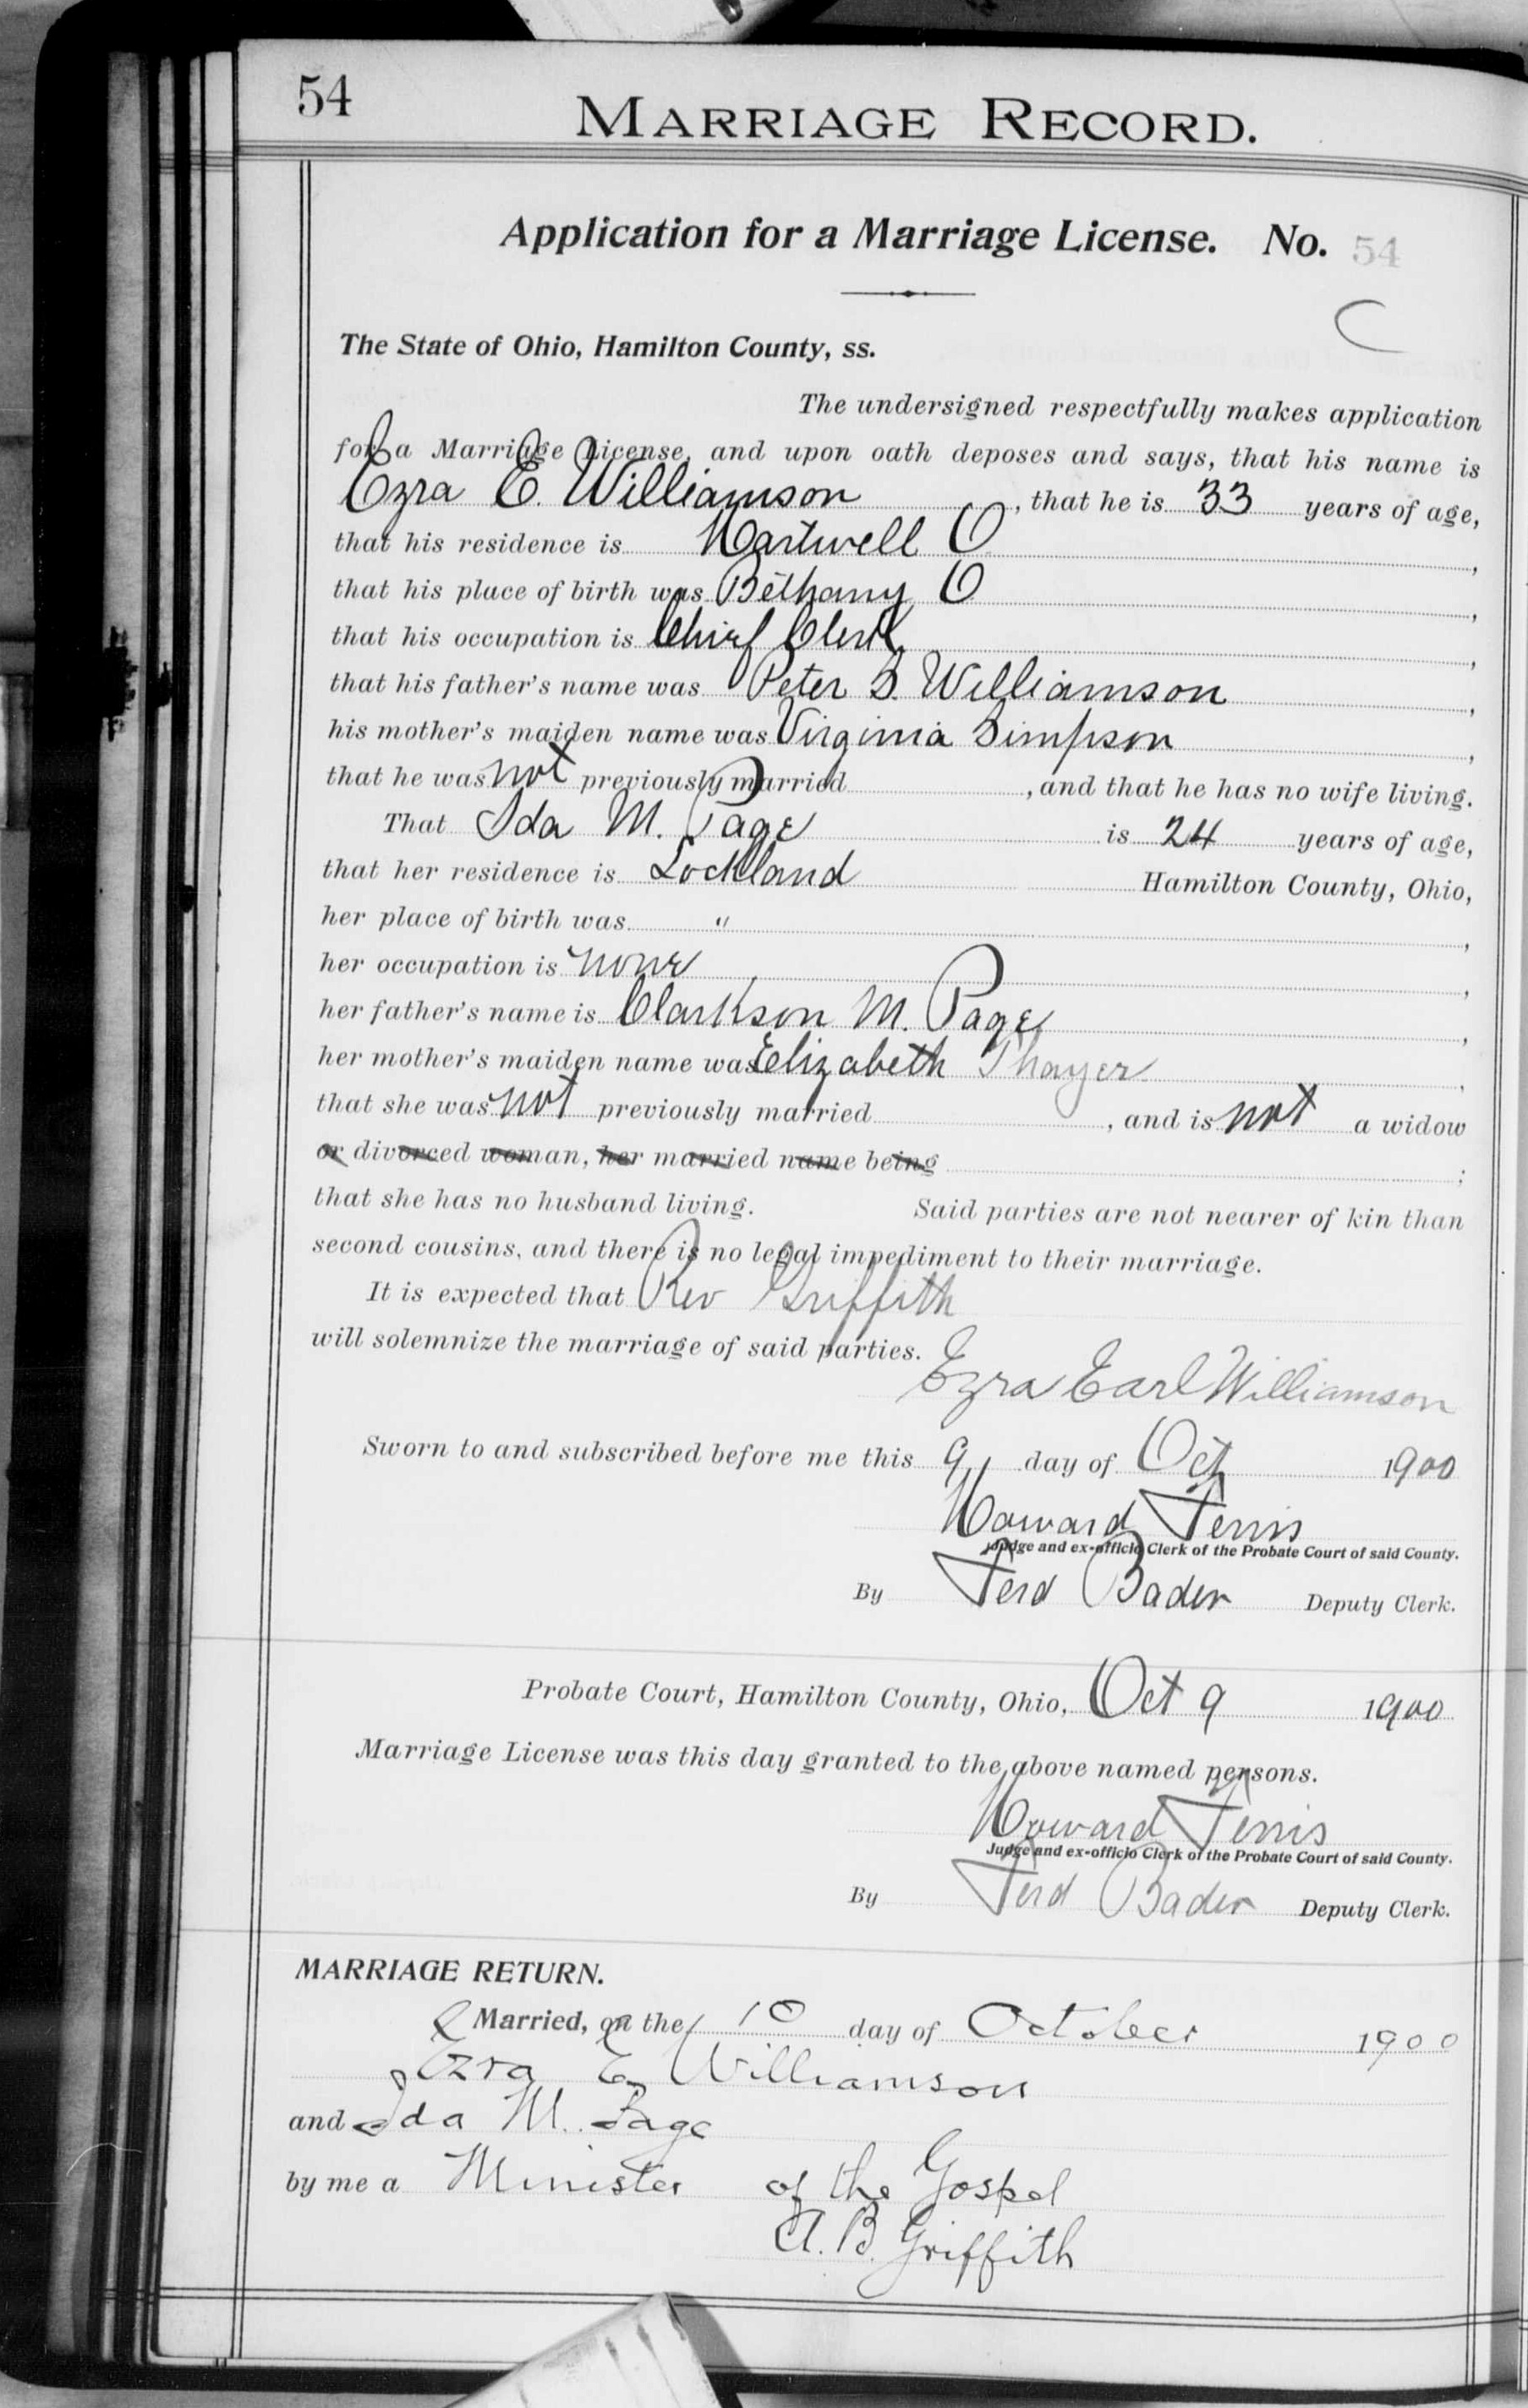 54
MARRIAGE RECORD.
Application for a Marriage License. No. 54
C
The State of Ohio, Hamilton County, ss.
The undersigned respectfully makes application
for a Marriage License, and upon oath deposes and says, that his name is
Ezra E. Williamson, that he is 33 years of age,
that his residence is Hartwell O,
that his place of birth was Bethany O,
that his occupation is Chief Clerk,
that his father's name was Peter S. Williamson,
his mother's maiden name was Virginia Simpson,
that he was not previously married, and that he has no wife living.
That Ida M. Page is 24 years of age,
that her residence is Lockland Hamilton County, Ohio,
her place of birth was " ,
her occupation is none,
her father's name is Clarkson M. Page,
her mother's maiden name was Elizabeth Thayer,
that she was not previously married, and is not a widow
or divorced woman, her married name being ;
that she has no husband living. Said parties are not nearer of kin than
second cousins, and there is no legal impediment to their marriage.
It is expected that Rev Griffith
will solemnize the marriage of said parties.
Ezra Earl Williamson
Sworn to and subscribed before me this 9 day of Oct 1900
Howard Ferris
Judge and ex-officio Clerk of the Probate Court of said County.
By Ferd Bader Deputy Clerk.
Probate Court, Hamilton County, Ohio, Oct 9 1900
Marriage License was this day granted to the above named persons.
Howard Ferris
Judge and ex-officio Clerk of the Probate Court of said County.
By Ferd Bader Deputy Clerk.
MARRIAGE RETURN.
Married, on the 10 day of October 1900
Ezra E. Williamson
and Ida M. Page
by me a Minister of the Gospel
A. B. Griffith